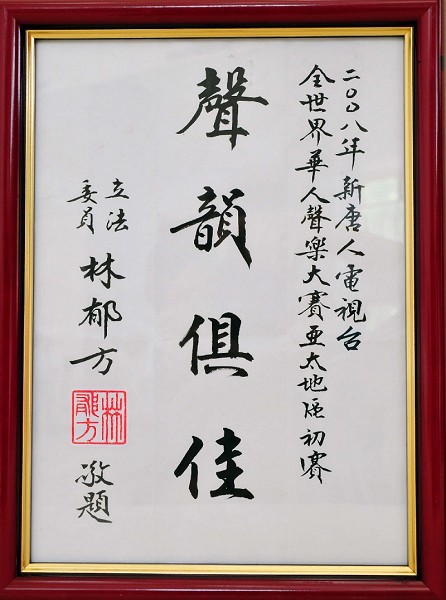 二〇〇八年新唐人電視台
全世界華人聲樂大賽亞太地區初賽
聲韻俱佳
立法委員 林郁方
林郁方
敬題